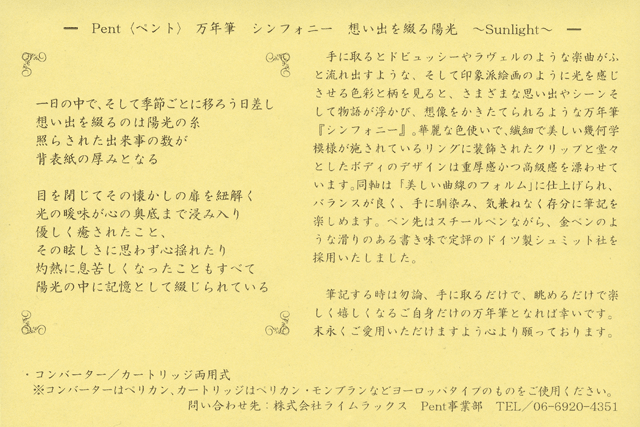 ― Pent〈ペント〉 万年筆 シンフォニー 想い出を綴る陽光 ～Sunlight～ ―
一日の中で、そして季節ごとに移ろう日差し
想い出を綴るのは陽光の糸
照らされた出来事の数が
背表紙の厚みとなる
目を閉じてその懐かしの扉を紐解く
光の暖味が心の奥底まで浸み入り
優しく癒されたこと、
その眩しさに思わず心揺れたり
灼熱に息苦しくなったこともすべて
陽光の中に記憶として綴じられている
手に取るとドビュッシーやラヴェルのような楽曲がふ
と流れ出すような、そして印象派絵画のように光を感じ
させる色彩と柄を見ると、さまざまな思い出やシーンそ
して物語が浮かび、想像をかきたてられるような万年筆
『シンフォニー』。華麗な色使いで、繊細で美しい幾何学
模様が施されているリングに装飾されたクリップと堂々
としたボディのデザインは重厚感かつ高級感を漂わせて
います。同軸は「美しい曲線のフォルム」に仕上げられ、
バランスが良く、手に馴染み、気兼ねなく存分に筆記を
楽しめます。ペン先はスチールペンながら、金ペンのよ
うな滑りのある書き味で定評のドイツ製シュミット社を
採用いたしました。
筆記する時は勿論、手に取るだけで、眺めるだけで楽
しく嬉しくなるご自身だけの万年筆となれば幸いです。
末永くご愛用いただけますよう心より願っております。
・コンバーター／カートリッジ両用式
※コンバーターはペリカン、カートリッジはペリカン・モンブランなどヨーロッパタイプのものをご使用ください。
問い合わせ先：株式会社ライムラックス Pent事業部 TEL／06-6920-4351